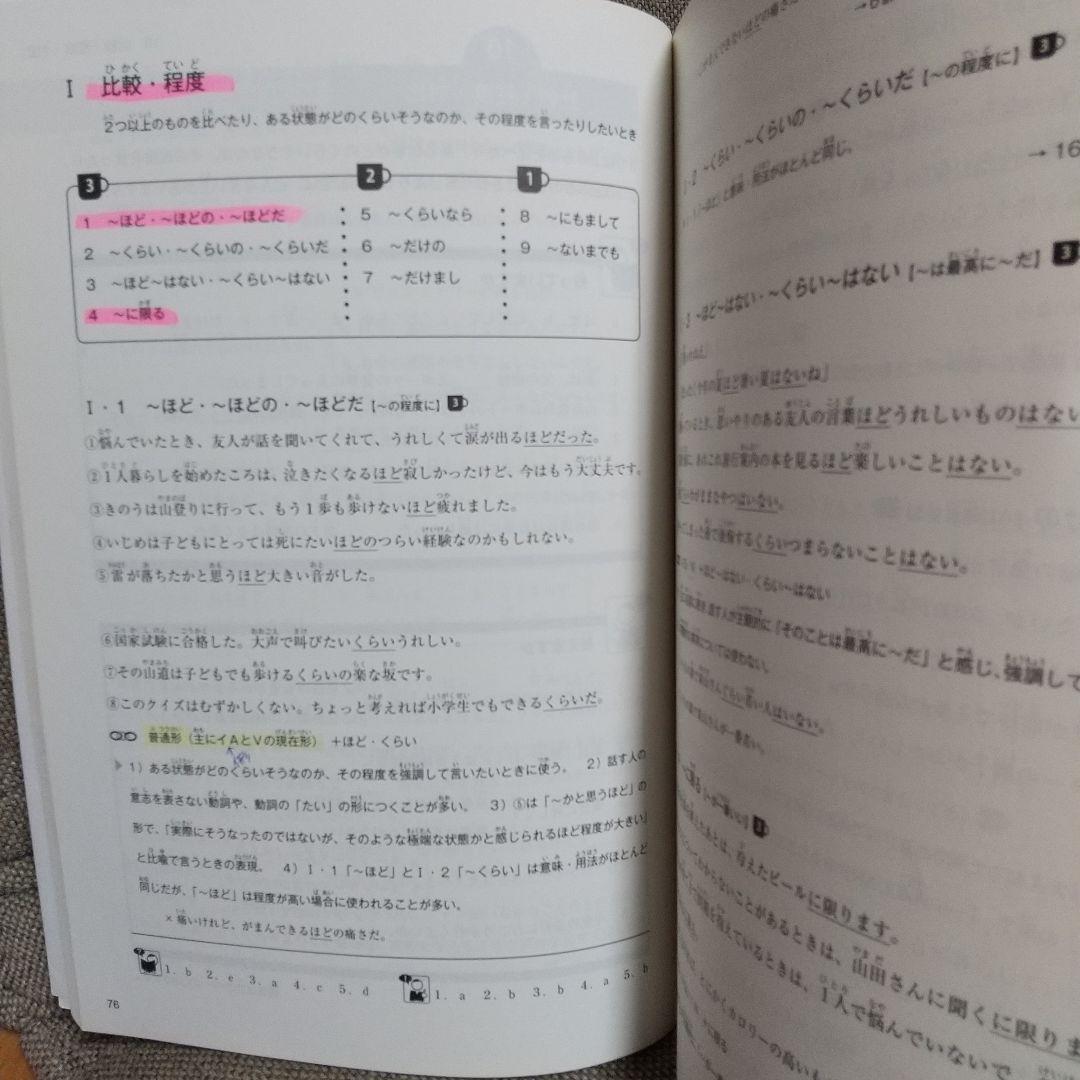 Ⅰ 比較・程度
2つ以上のものを比べたり、ある状態がどのくらいそうなのか、その程度を言ったりしたいとき
3
2
1
1 ～ほど・～ほどの・～ほどだ
2 ～くらい・～くらいの・～くらいだ
3 ～ほど～はない・～くらい～はない
4 ～に限る
5 ～くらいなら
6 ～だけの
7 ～だけまし
8 ～にもまして
9 ～ないまでも
Ⅰ・1 ～ほど・～ほどの・～ほどだ【～の程度に】3
①悩んでいたとき、友人が話を聞いてくれて、うれしくて涙が出るほどだった。
②1人暮らしを始めたころは、泣きたくなるほど寂しかったけど、今はもう大丈夫です。
③きのうは山登りに行って、もう1歩も歩けないほど疲れました。
④いじめは子どもにとっては死にたいほどのつらい経験なのかもしれない。
⑤雷が落ちたかと思うほど大きい音がした。
⑥国家試験に合格した。大声で叫びたいくらいうれしい。
⑦その山道は子どもでも歩けるくらいの楽な坂です。
⑧このクイズはむずかしくない。ちょっと考えれば小学生でもできるくらいだ。
普通形(主にイAとVの現在形) +ほど・くらい
1)ある状態がどのくらいそうなのか、その程度を強調して言いたいときに使う。 2)話す人の
意志を表さない動詞や、動詞の「たい」の形につくことが多い。 3)⑤は「～かと思うほど」の
形で、「実際にそうなったのではないが、そのような極端な状態かと感じられるほど程度が大きい」
と比喩で言うときの表現。 4)Ⅰ・1「～ほど」とⅠ・2「～くらい」は意味・用法がほとんど
同じだが、「～ほど」は程度が高い場合に使われることが多い。
×痛いけれど、がまんできるほどの痛さだ。
1. b 2. e 3. a 4. c 5. d
1. a 2. b 3. b 4. a 5. b
76
・2 ～くらい・～くらいの・～くらいだ【～の程度に】3
→16
～ほど～はない・～くらい～はない【～は最高に～だ】3
ほど暑い夏はないね」
思いやりのある友人の言葉ほどうれしいものはない
旅行案内の本を見るほど楽しいことはない。
わがままなやつはいない。
後悔するくらいつまらないことはない。
～ほど～はない・くらい～はない
話す人が主観的に「そのことは最高に～だ」と感じ、強調して
については使わない。
さんぐらい若い人はいない。
さんが一番若い。
3
あとは、冷えたビールに限ります。
わからないことがあるときは、山田さんに聞くに限りま
を抱えているときは、1人で悩んでいないで
とにかくカロリーの高いも